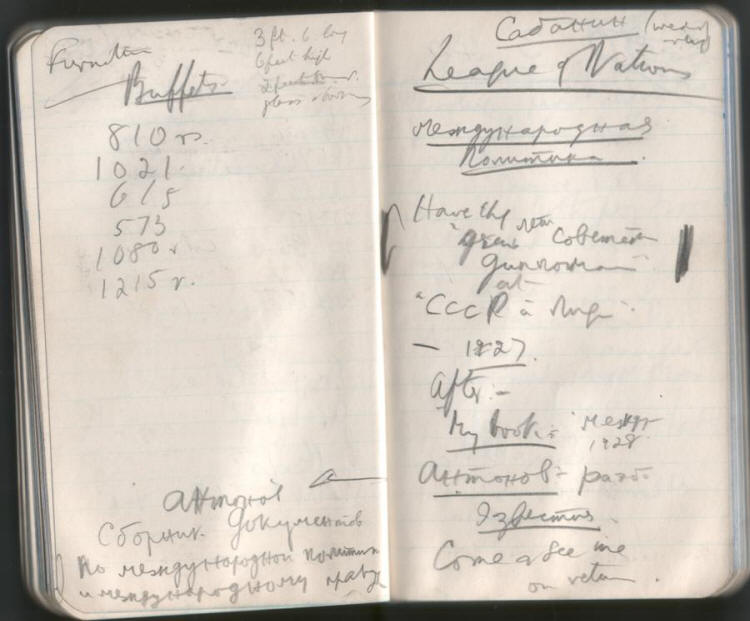 Furniture
Buffets
3 ft. 6 long
6 feet high
2 feet
glass & bronze
810 rs.
1021.
615
573
1080 r
1215 r.
Антонов
Сборник Документов
по международной политике
и международному праву
Сабанин
League of Nations
международная
политика.
Have they
лет
советск
at
"СССР
– 1927.
After:–
My book:– межд
1928
Антонов – разб
Известия.
Come & see me
on return.